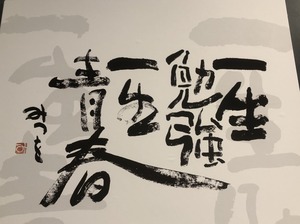 一生
勉強
一生
青春
みつを